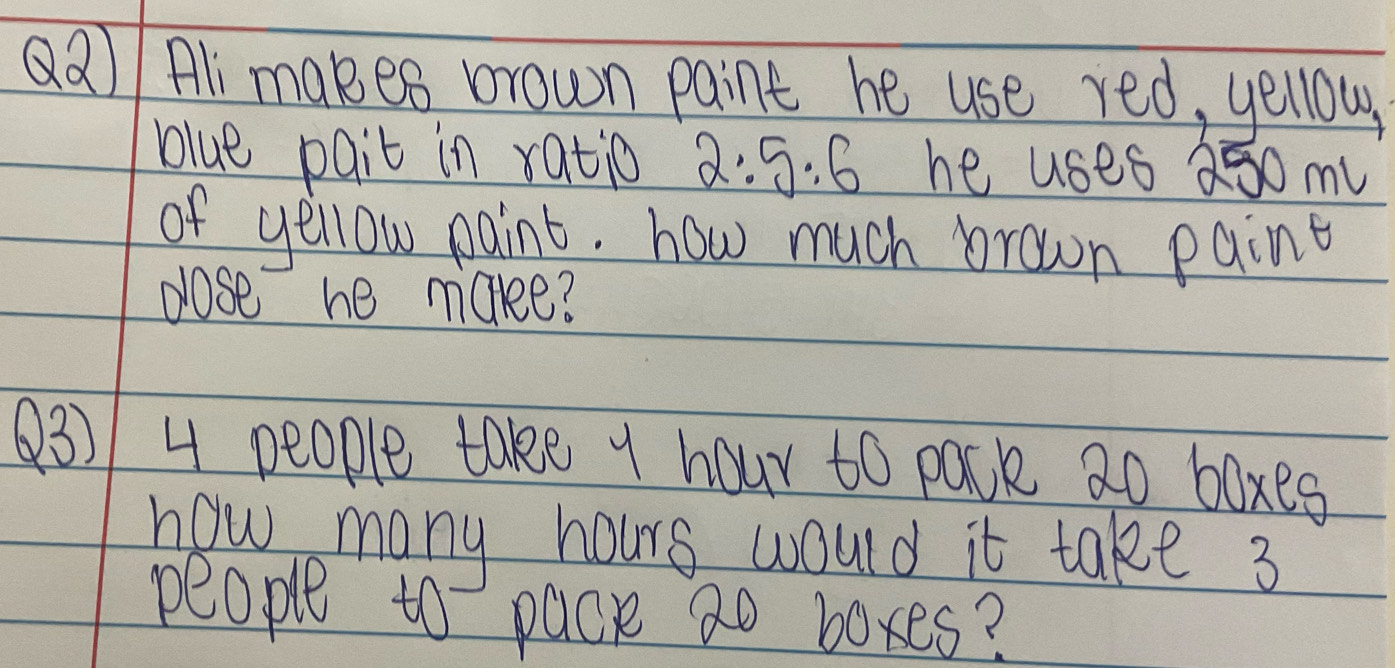 Q2) Ali makes brown paint he use red, yellow,
blue pait in ratio 2:5:6 he uses 250 ml
of yellow paint. how much brown paint
dose he make?
Q3) 4 people take 4 hour to pack 20 boxes
how many hours would it take 3
people to pack 20 boxes?